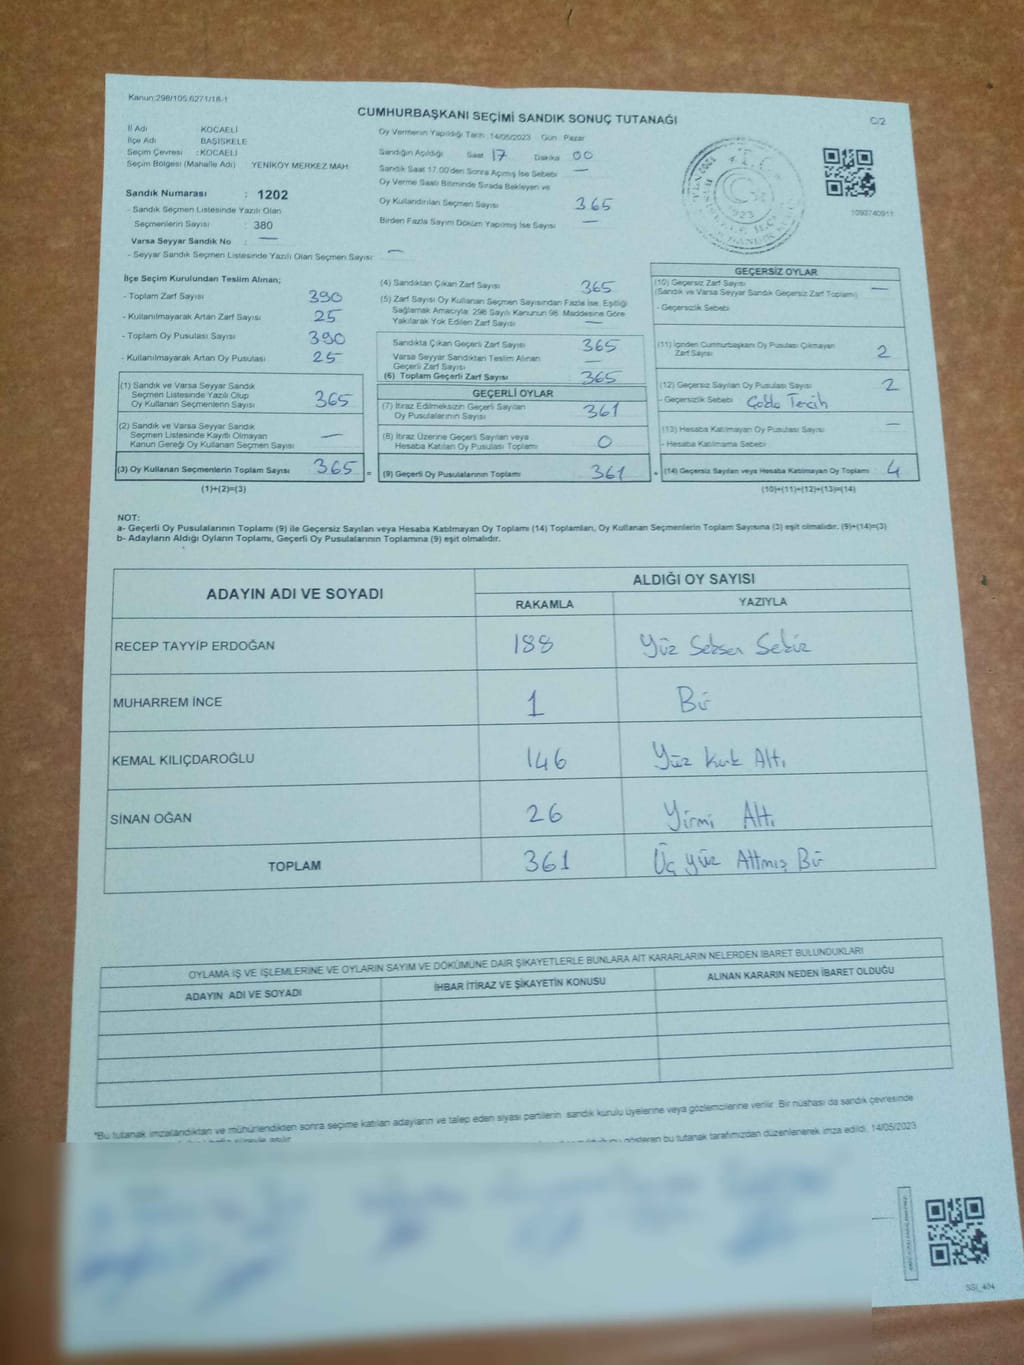 Kanun:298/105,6271/18-1
CUMHURBAŞKANI SEÇİMİ SANDIK SONUÇ TUTANAĞI
C/2
İl Adı KOCAELİ
İlçe Adı BAŞİSKELE
Seçim Çevresi :KOCAELİ
Seçim Bölgesi (Mahalle Adı) YENİKÖY MERKEZ MAH.
Sandık Numarası : 1202
- Sandık Seçmen Listesinde Yazılı Olan
Seçmenlerin Sayısı : 380
Varsa Seyyar Sandık No : —
- Seyyar Sandık Seçmen Listesinde Yazılı Olan Seçmen Sayısı: —
Oy Vermenin Yapıldığı Tarih :14/05/2023 Gün: Pazar
Sandığın Açıldığı Saat 17 Dakika 00
Sandık Saat 17.00'den Sonra Açılmış İse Sebebi —
Oy Verme Saati Bitiminde Sırada Bekleyen ve
Oy Kullandırılan Seçmen Sayısı 365
Birden Fazla Sayım Döküm Yapılmış İse Sayısı —
1923
1093740911
İlçe Seçim Kurulundan Teslim Alınan;
- Toplam Zarf Sayısı 390
- Kullanılmayarak Artan Zarf Sayısı 25
- Toplam Oy Pusulası Sayısı 390
- Kullanılmayarak Artan Oy Pusulası 25
(1) Sandık ve Varsa Seyyar Sandık
Seçmen Listesinde Yazılı Olup
Oy Kullanan Seçmenlerin Sayısı 365
(2) Sandık ve Varsa Seyyar Sandık
Seçmen Listesinde Kayıtlı Olmayan
Kanun Gereği Oy Kullanan Seçmen Sayısı —
(3) Oy Kullanan Seçmenlerin Toplam Sayısı 365 =
(1)+(2)=(3)
(4) Sandıktan Çıkan Zarf Sayısı 365
(5) Zarf Sayısı Oy Kullanan Seçmen Sayısından Fazla İse, Eşitliği
Sağlamak Amacıyla; 298 Sayılı Kanunun 98. Maddesine Göre
Yakılarak Yok Edilen Zarf Sayısı —
Sandıkta Çıkan Geçerli Zarf Sayısı 365
Varsa Seyyar Sandıktan Teslim Alınan
Geçerli Zarf Sayısı —
(6) Toplam Geçerli Zarf Sayısı 365
GEÇERLİ OYLAR
(7) İtiraz Edilmeksizin Geçerli Sayılan
Oy Pusulalarının Sayısı 361
(8) İtiraz Üzerine Geçerli Sayılan veya
Hesaba Katılan Oy Pusulası Toplamı 0
(9) Geçerli Oy Pusulalarının Toplamı 361 +
GEÇERSİZ OYLAR
(10) Geçersiz Zarf Sayısı —
(Sandık ve Varsa Seyyar Sandık Geçersiz Zarf Toplamı)
- Geçersizlik Sebebi
(11) İçinden Cumhurbaşkanı Oy Pusulası Çıkmayan
Zarf Sayısı 2
(12) Geçersiz Sayılan Oy Pusulası Sayısı 2
- Geçersizlik Sebebi Çoklu Tercih
(13) Hesaba Katılmayan Oy Pusulası Sayısı —
- Hesaba Katılmama Sebebi
(14) Geçersiz Sayılan veya Hesaba Katılmayan Oy Toplamı 4
(10)+(11)+(12)+(13)=(14)
NOT:
a- Geçerli Oy Pusulalarının Toplamı (9) ile Geçersiz Sayılan veya Hesaba Katılmayan Oy Toplamı (14) Toplamları, Oy Kullanan Seçmenlerin Toplam Sayısına (3) eşit olmalıdır. (9)+(14)=(3)
b- Adayların Aldığı Oyların Toplamı, Geçerli Oy Pusulalarının Toplamına (9) eşit olmalıdır.
ADAYIN ADI VE SOYADI
ALDIĞI OY SAYISI
RAKAMLA YAZIYLA
RECEP TAYYİP ERDOĞAN 188 Yüz Seksen Sekiz
MUHARREM İNCE 1 Bir
KEMAL KILIÇDAROĞLU 146 Yüz Kırk Altı
SİNAN OĞAN 26 Yirmi Altı
TOPLAM 361 Üç yüz Altmış Bir
OYLAMA İŞ VE İŞLEMLERİNE VE OYLARIN SAYIM VE DÖKÜMÜNE DAİR ŞİKAYETLERLE BUNLARA AİT KARARLARIN NELERDEN İBARET BULUNDUKLARI
ADAYIN ADI VE SOYADI İHBAR İTİRAZ VE ŞİKAYETİN KONUSU ALINAN KARARIN NEDEN İBARET OLDUĞU
*Bu tutanak imzalandıktan ve mühürlendikten sonra seçime katılan adayların ve talep eden siyasi partilerin sandık kurulu üyelerine veya gözlemcilerine verilir. Bir nüshası da sandık çevresinde
gösteren bu tutanak tarafımızdan düzenlenerek imza edildi. 14/05/2023
SSİ_404